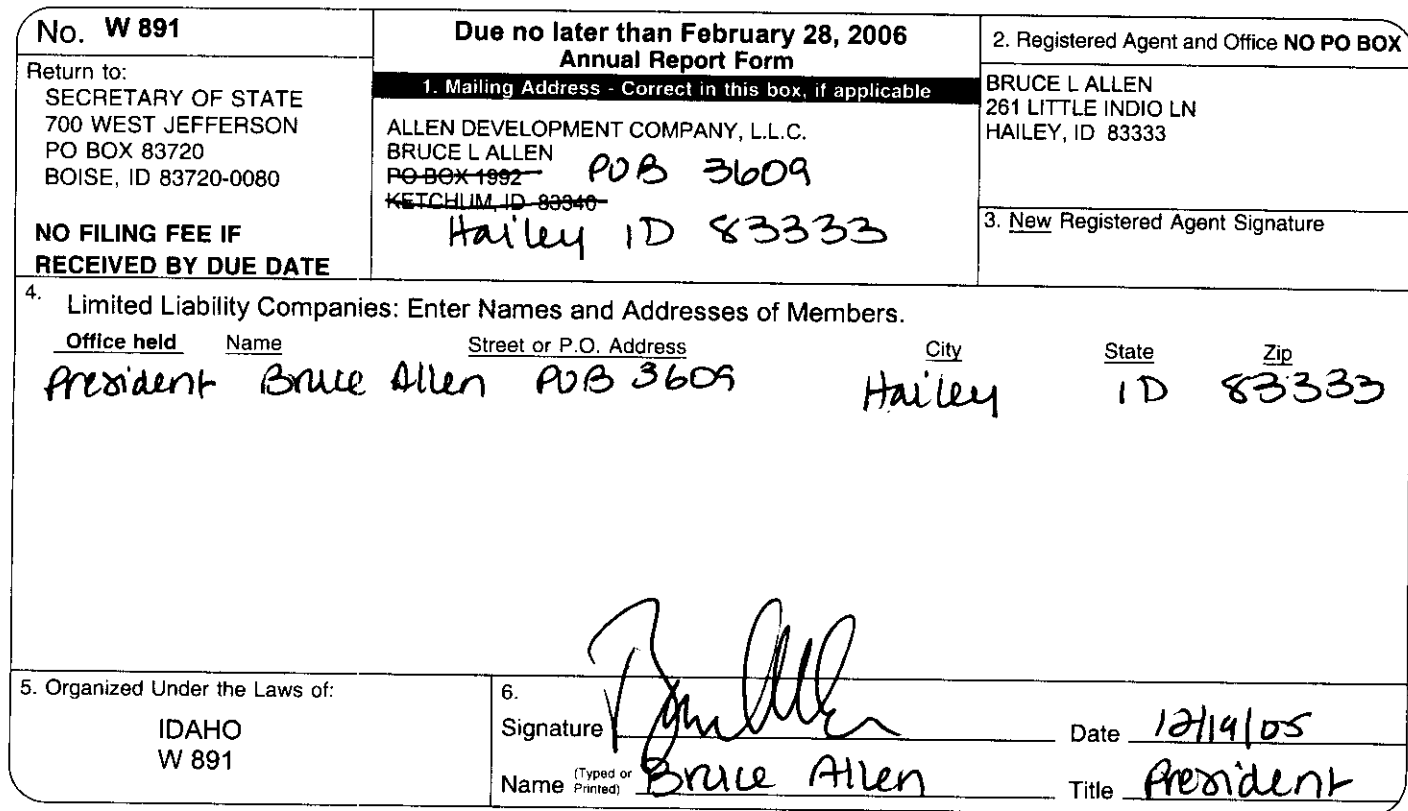 No. W 891
Return to:
SECRETARY OF STATE
700 WEST JEFFERSON
PO BOX 83720
BOISE, ID 83720-0080
NO FILING FEE IF
RECEIVED BY DUE DATE
Due no later than February 28, 2006
Annual Report Form
1. Mailing Address - Correct in this box, if applicable
ALLEN DEVELOPMENT COMPANY, L.L.C.
BRUCE L ALLEN
PO BOX 1992 POB 3609
KETCHUM, ID 83340
Hailey ID 83333
2. Registered Agent and Office NO PO BOX
BRUCE L ALLEN
261 LITTLE INDIO LN
HAILEY, ID 83333
3. New Registered Agent Signature
4. Limited Liability Companies: Enter Names and Addresses of Members.
Office held Name Street or P.O. Address City State Zip
President Bruce Allen POB 3609 Hailey ID 83333
5. Organized Under the Laws of:
IDAHO
W 891
6.
Signature Bruce Allen Date 12/19/05
Name (Typed or Printed) Bruce Allen Title President